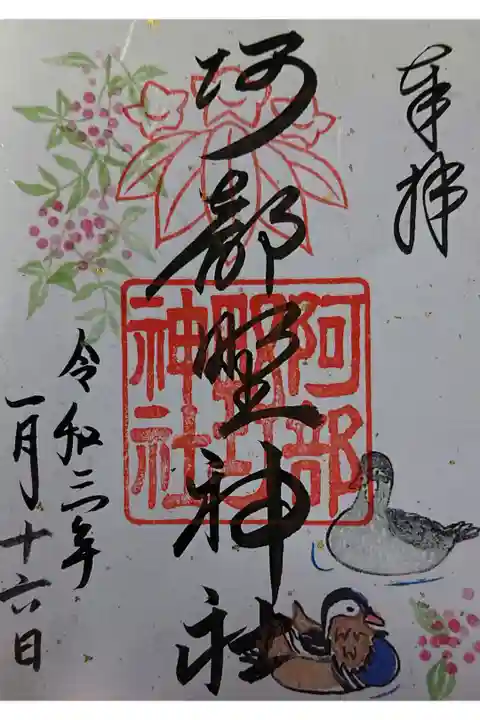 奉拝
阿部野神社
阿部
野
神社
令和三年
一月十六日